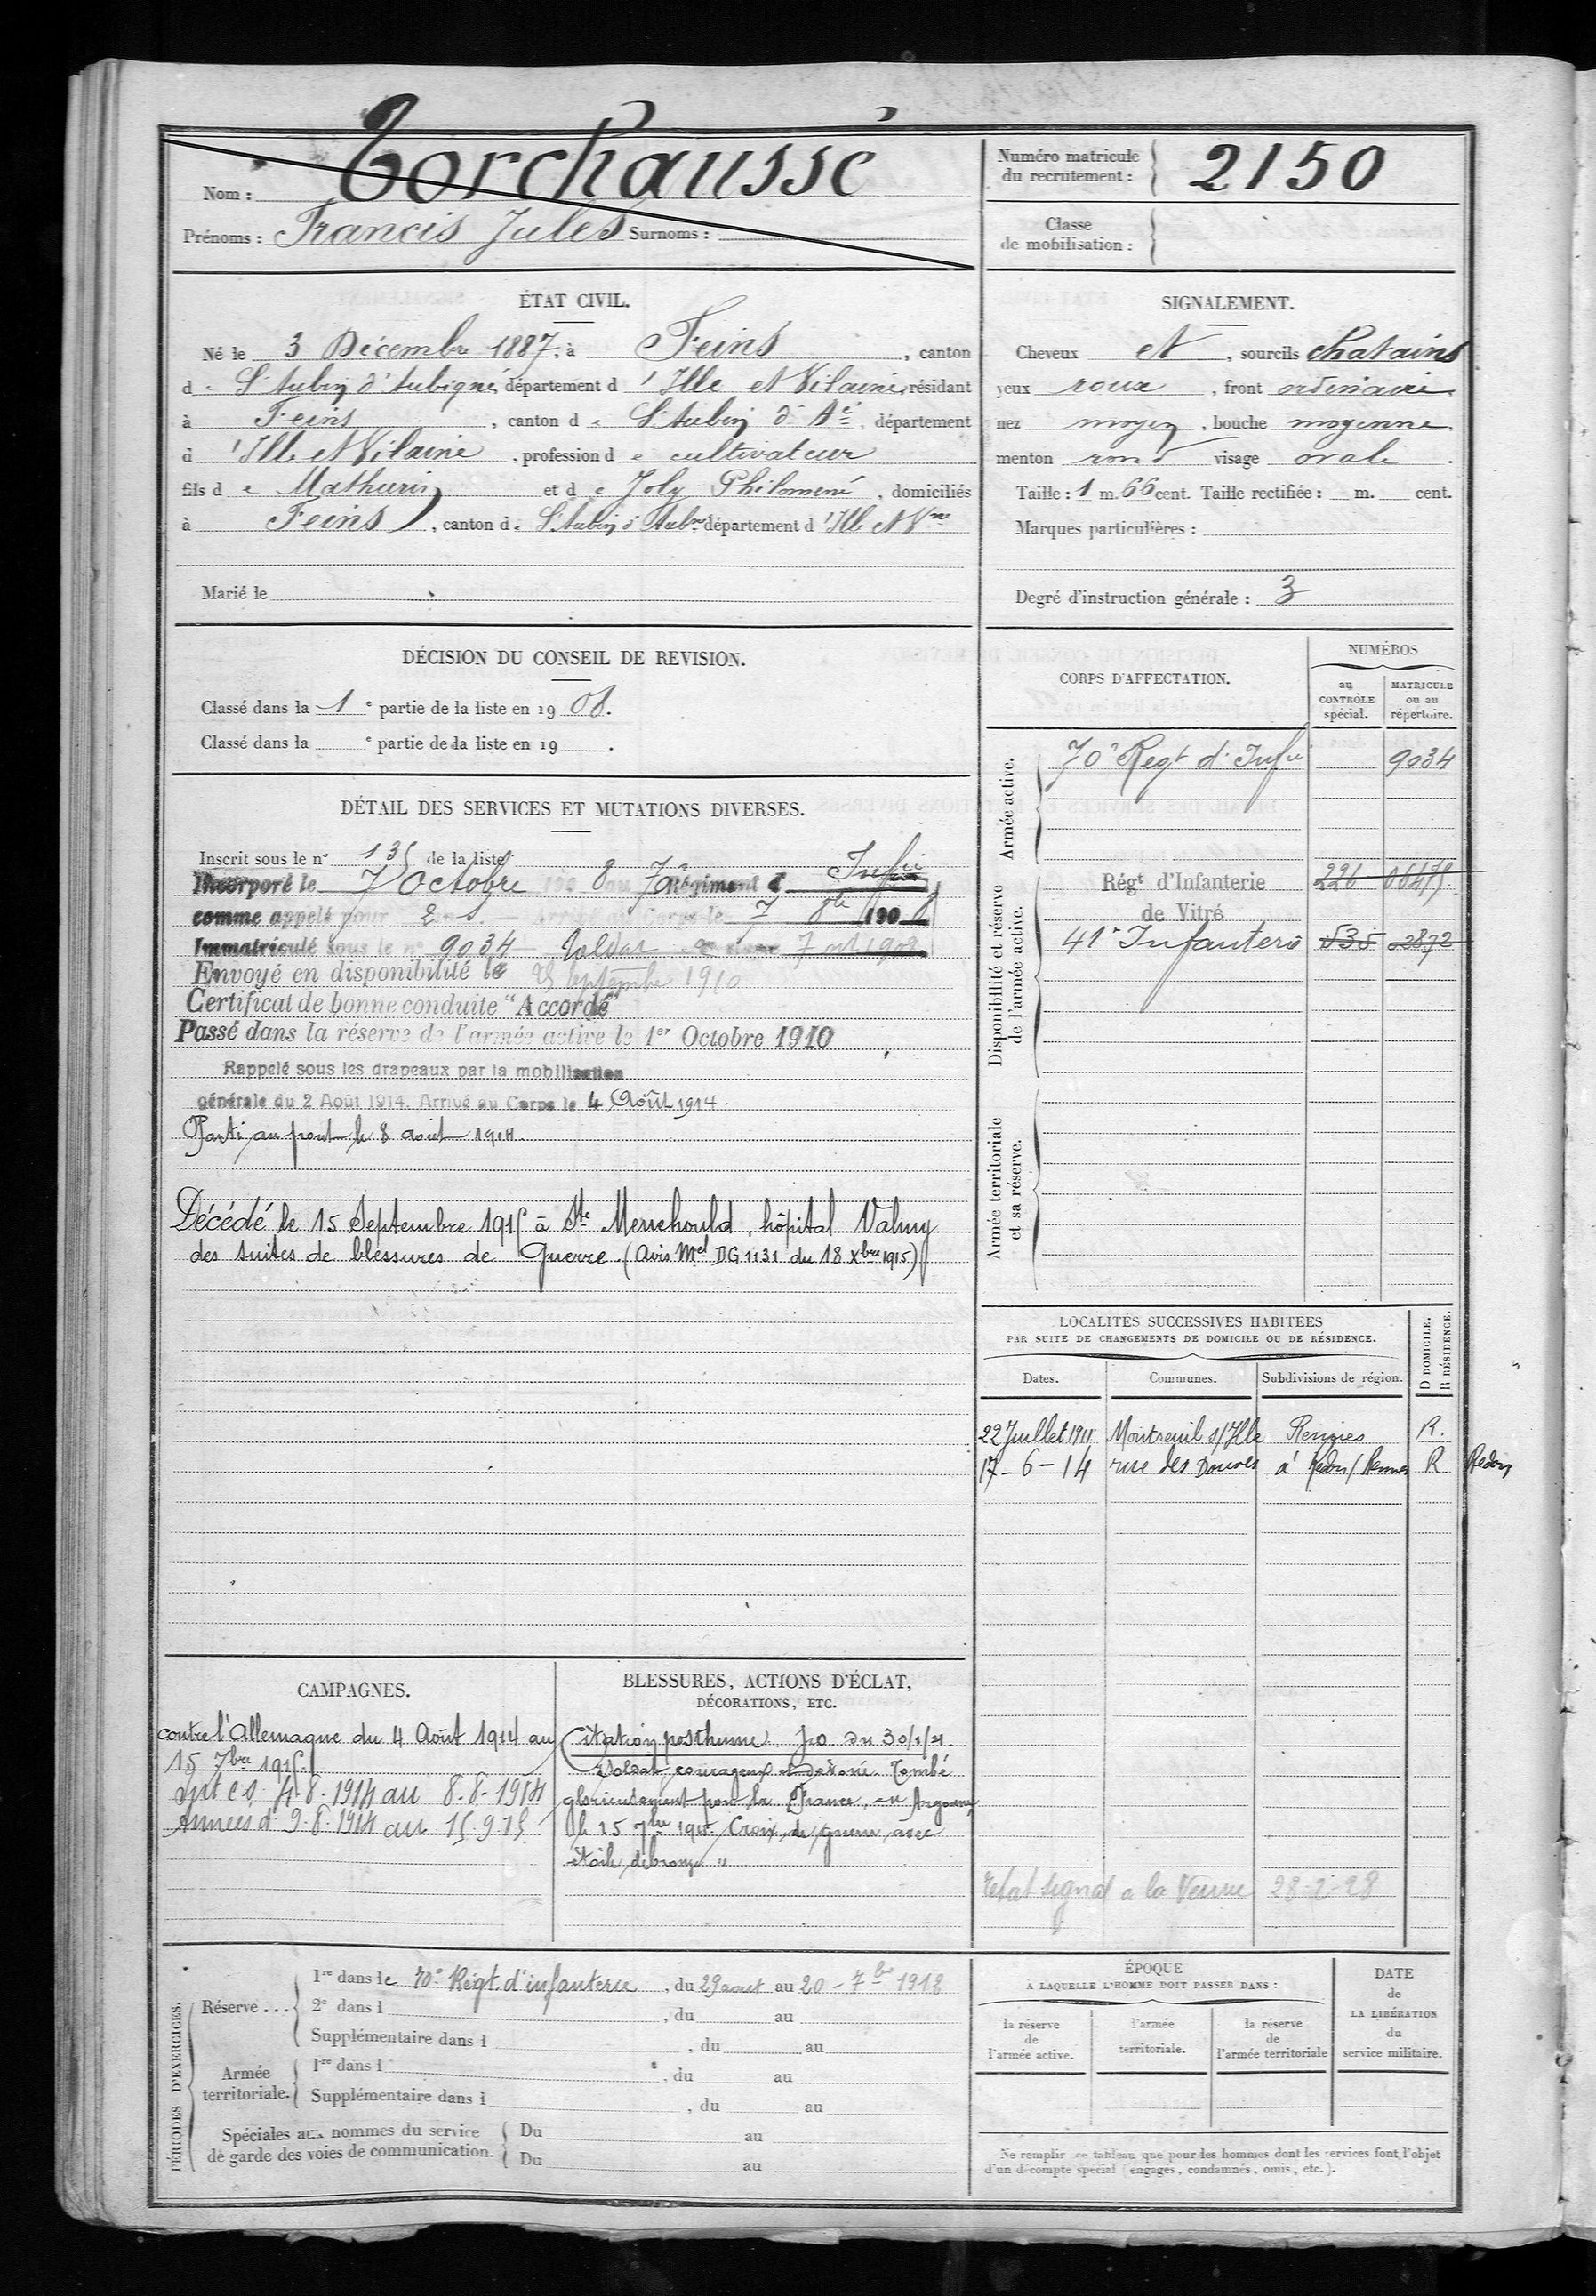 Nom : Corchaussé
Prénoms : Francis Jules Surnoms :
Numéro matricule
du recrutement : 2150
Classe
de mobilisation :
ÉTAT CIVIL.
Né le 3 Décembre 1887, à Feins, canton
de St Aubin d'Aubigné, département d'Ille et Vilaine, résidant
à Feins, canton de St Aubin d'Aé, département
d'Ille et Vilaine, profession de cultivateur
fils de Mathurin et de Joly Philomène, domiciliés
à Feins, canton de St Aubin d'Aubné département d'Ille et Vne
Marié le
SIGNALEMENT.
Cheveux et, sourcils chatains
yeux roux, front ordinaire
nez moyen, bouche moyenne,
menton rond visage ovale.
Taille : 1 m. 66 cent. Taille rectifiée : m. cent.
Marques particulières :
Degré d'instruction générale : 3
DÉCISION DU CONSEIL DE REVISION.
Classé dans la 1e partie de la liste en 1908.
Classé dans la e partie de la liste en 19 .
DÉTAIL DES SERVICES ET MUTATIONS DIVERSES.
Inscrit sous le n° 135 de la liste
Incorporé le 7 Octobre 1908 au 70 Régiment d'Infie
comme appelé pour 2 ans. Arrivé au Corps le 7 8bre 1908
Immatriculé sous le n° 9034 Soldat de classe 7 oct 1908
Envoyé en disponibilité le 25 Septembre 1910
Certificat de bonne conduite "Accordé"
Passé dans la réserve de l'armée active le 1er Octobre 1910
Rappelé sous les drapeaux par la mobilisation
générale du 2 Août 1914. Arrivé au Corps le 4 Août 1914.
Parti au front le 8 août 1914.
Décédé le 15 Septembre 1915 à Ste Menehould, hôpital Valmy
des suites de blessures de Guerre. (Avis Mel DG 1131 du 18 Xbre 1915)
CORPS D'AFFECTATION.
NUMÉROS
au
CONTRÔLE
spécial.
MATRICULE
ou au
répertoire.
Armée active.
70e Regt d'Infie 9034
Disponibilité et réserve
de l'armée active.
Régt d'Infanterie 226 06475
de Vitré
41e Infanterie 535 02872
Armée territoriale
et sa réserve.
LOCALITÉS SUCCESSIVES HABITÉES
PAR SUITE DE CHANGEMENTS DE DOMICILE OU DE RÉSIDENCE.
Dates. Communes. Subdivisions de région. D DOMICILE. R RÉSIDENCE.
22 Juillet 1911 Montreuil s/Ille Rennes R.
17-6-14 rue des Douves à Redon / Rennes R Redon
Etat signal a la Veuve 28-2-28
CAMPAGNES.
contre l'Allemagne du 4 Août 1914 au
15 7bre 1915.
Int C.S. 4.8.1914 au 8.8.1914
Armées d. 9.8.1914 au 15.9.15
BLESSURES, ACTIONS D'ÉCLAT,
DÉCORATIONS, ETC.
Citation posthume. J.O. du 30/1/21.
"Soldat courageux et dévoué. Tombé
glorieusement pour la France, en Argonne,
le 15 7bre 1915. Croix de guerre avec
étoile de bronze"
PÉRIODES D'EXERCICES.
Réserve ...
1re dans le 70e Régt. d'infanterie, du 29 aout au 20-7bre 1912
2e dans l , du au
Supplémentaire dans l , du au
Armée
territoriale.
1re dans l , du au
Supplémentaire dans l , du au
Spéciales aux hommes du service
de garde des voies de communication.
Du au
Du au
ÉPOQUE
À LAQUELLE L'HOMME DOIT PASSER DANS :
la réserve
de
l'armée active.
l'armée
territoriale.
la réserve
de
l'armée territoriale
DATE
de
LA LIBÉRATION
du
service militaire.
Ne remplir ce tableau que pour des hommes dont les services font l'objet
d'un décompte spécial (engagés, condamnés, omis, etc.).